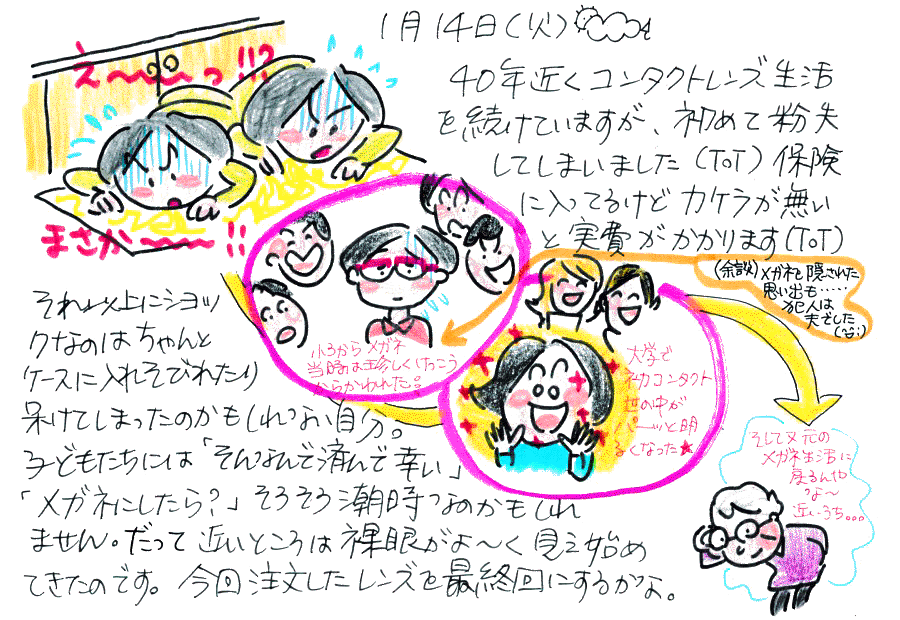 1月14日(火)
え〜〜っ!!?
まさか〜〜!!
40年近くコンタクトレンズ生活
を続けていますが、初めて粉失
してしまいました(ToT)保険
に入ってるけどカケラが無い
と実費がかかります(ToT)
(余談)メガネを隠された
思い出も……
犯人は
夫でした
小3からメガネ
当時は珍しくけっこう
からかわれた
大学で
初コンタクト
世の中が
パーッと明
るくなった★
そして又元の
メガネ生活に
戻るんや
な〜
近いうち…
それ以上にショッ
クなのはちゃんと
ケースに入れそびれたり
呆けてしまったのかもしれない自分。
子どもたちには「そんなんで済んで幸い」
「メガネにしたら?」そろそろ潮時なのかもしれ
ません。だって近いところは裸眼がよ〜く見え始め
てきたのです。今回注文したレンズを最終回にするかな。